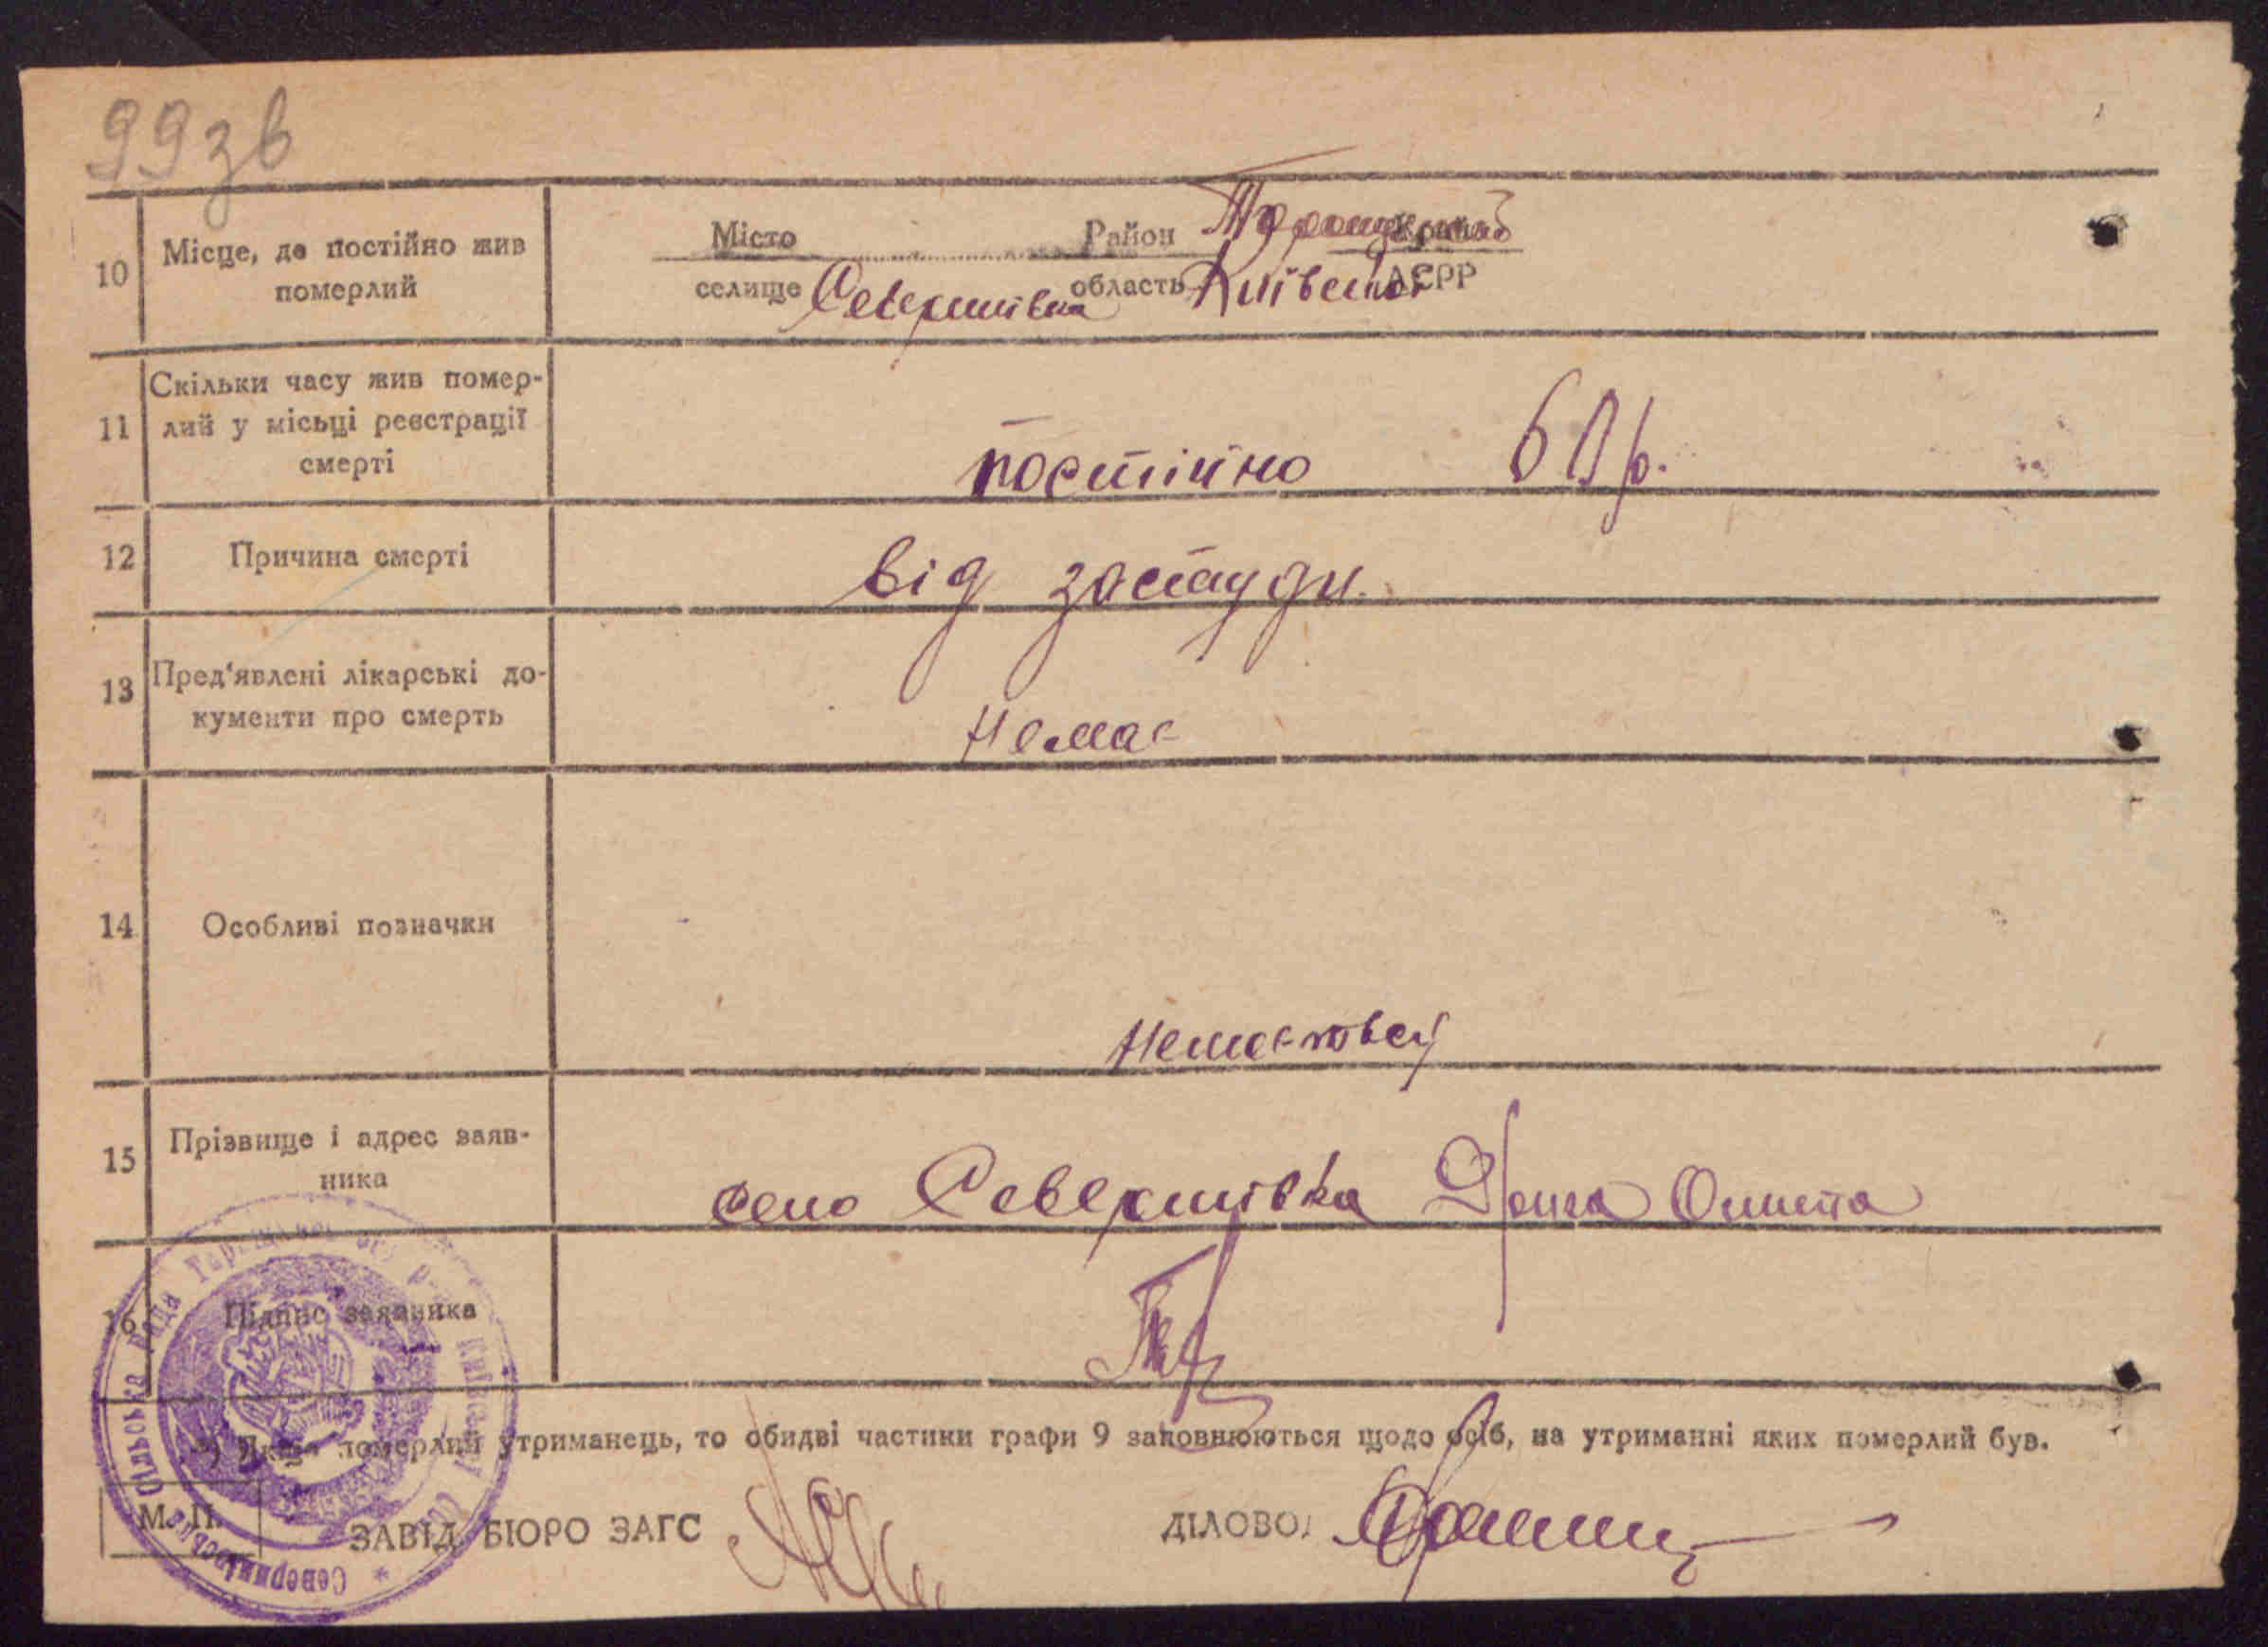 99зв
10 Місце, де постійно жив померлий
Місто Район Таращанський Країна
селище Северинівка область Київська АСРР
11 Скільки часу жив помер-
лий у місьці реєстрації
смерті
постійно 60 р.
12 Причина смерті від застуди.
13 Пред'явлені лікарські до-
кументи про смерть
Немає
14 Особливі позначки
15 Прізвище і адрес заяв-
ника
село Северинівка
16 Підпис заявника
*) Якщо померлий утриманець, то обидві частики графи 9 заповнюються щодо осіб, на утриманні яких померлий був.
М. П.
ЗАВІД. БЮРО ЗАГС ДІЛОВОД